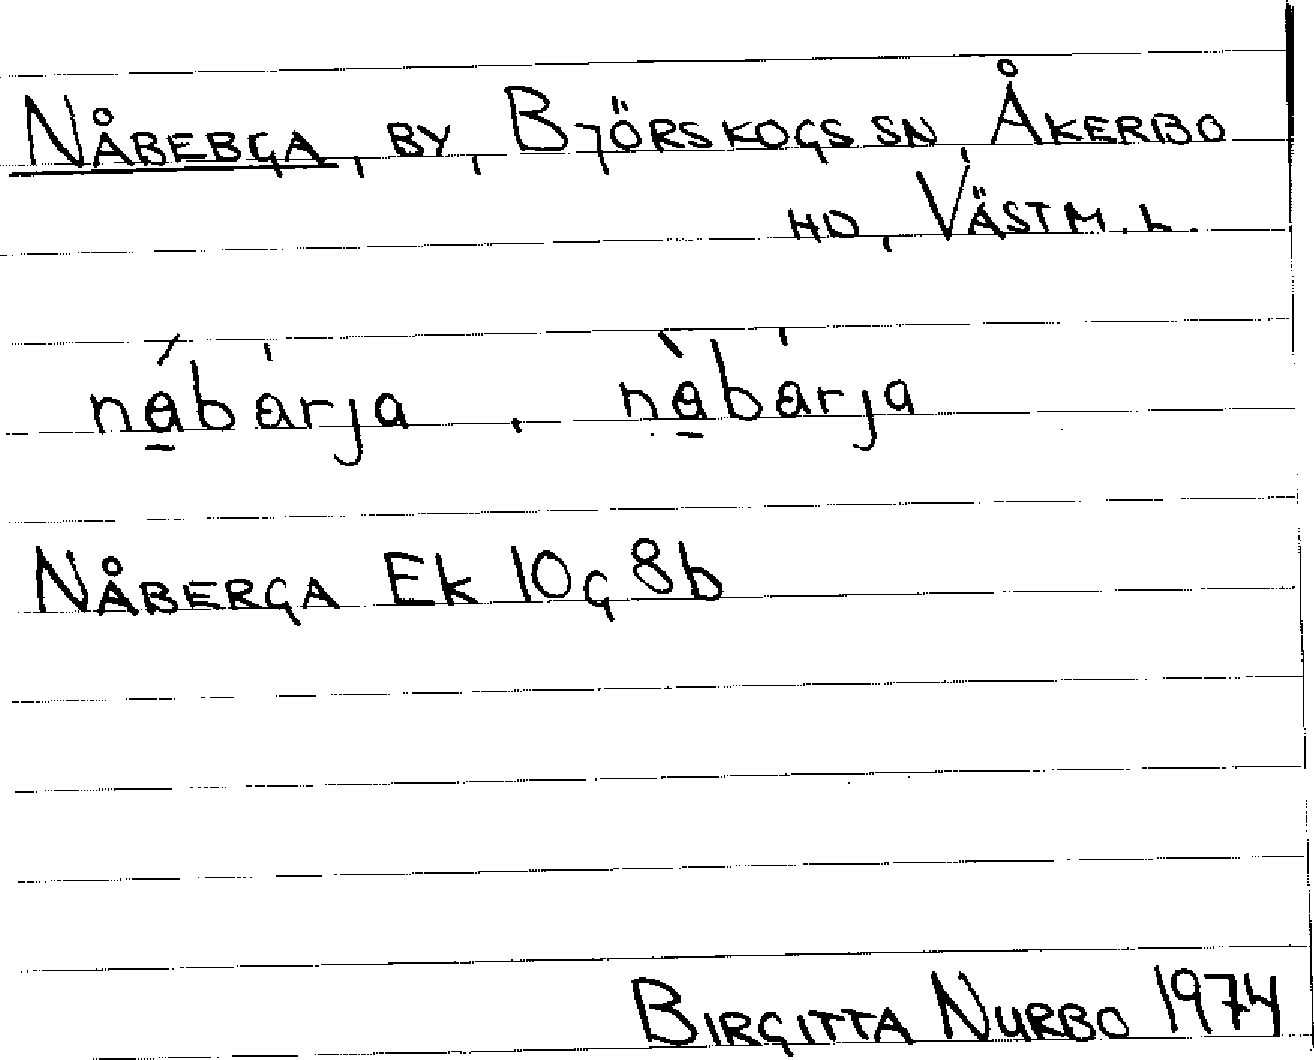 NÅBEBGA, BY, BJÖRSKOGS SN, ÅKERBO
HD, VÄSTM. L.
nábárja, nàbárja
NÅBERGA EK 10G 8b
BIRGITTA NURBO 1974